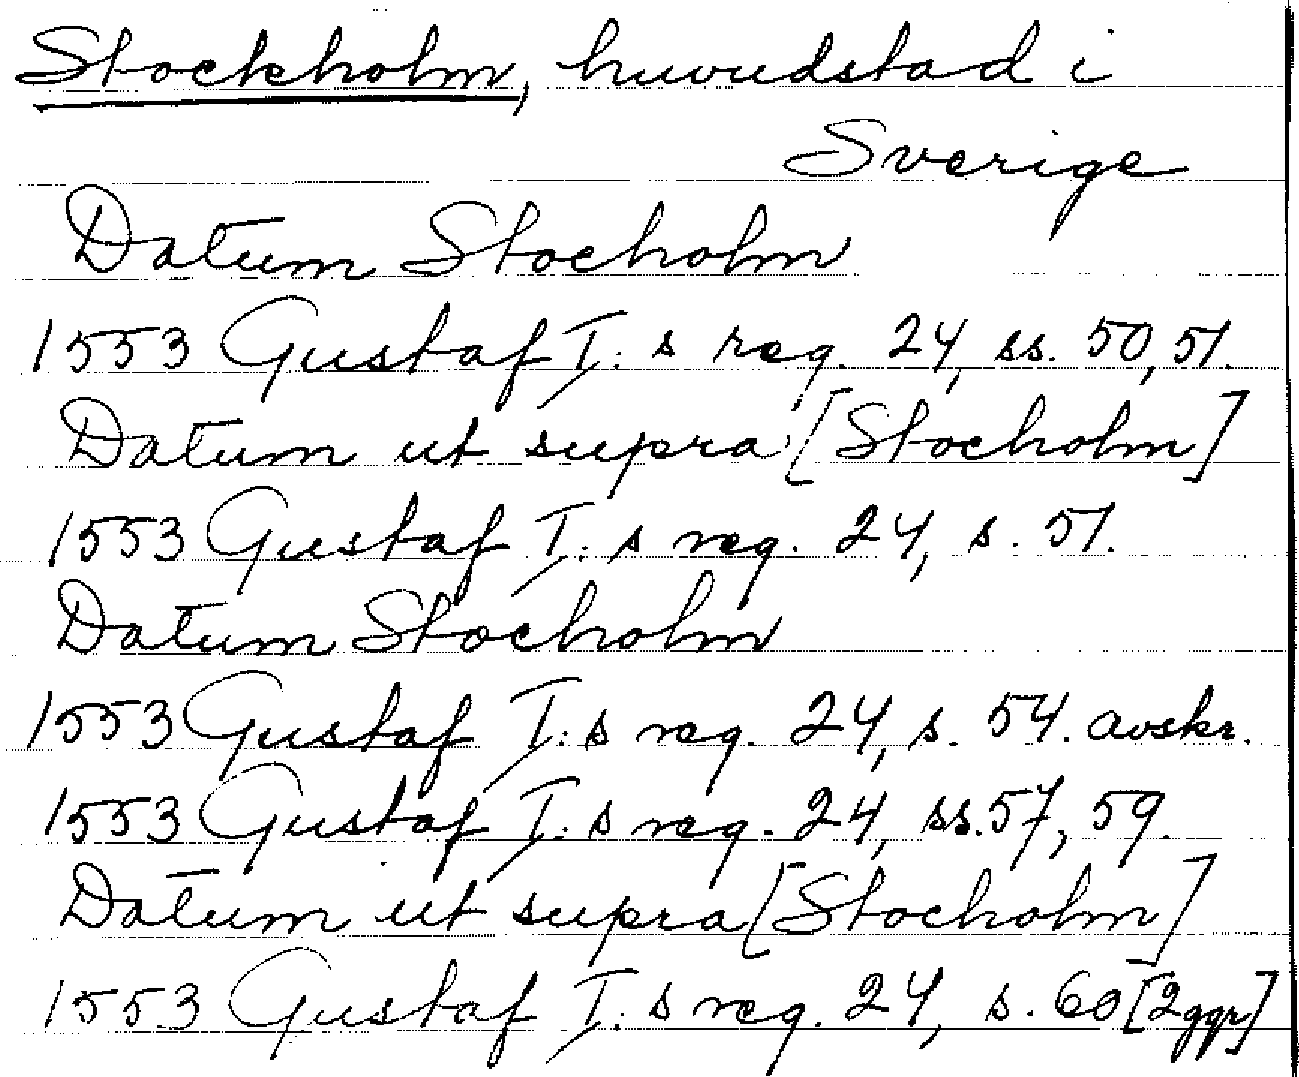 Stockholm, huvudstad i
Sverige
Datum Stocholm
1553 Gustaf I:s reg. 24, ss. 50, 51.
Datum ut supra [Stocholm]
1553 Gustaf I:s reg. 24, s. 51.
Datum Stocholm
1553 Gustaf I:s reg. 24, s. 54. avskr.
1553 Gustaf I:s reg. 24, ss. 57, 59.
Datum ut supra [Stocholm]
1553 Gustaf I:s reg. 24, s. 60 [2 ggr]